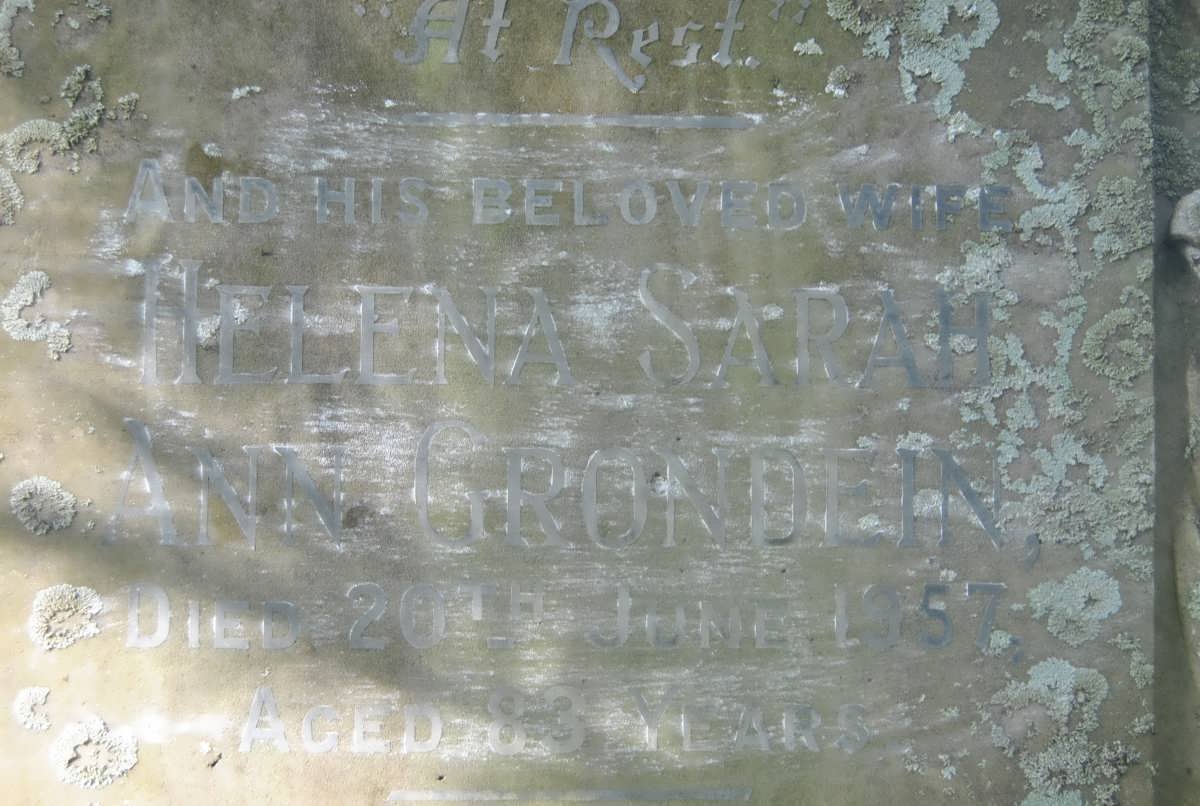 "At Rest."
AND HIS BELOVED WIFE
HELENA SARAH
ANN GRONDEIN,
DIED 20TH JUNE 1957,
AGED 83 YEARS.